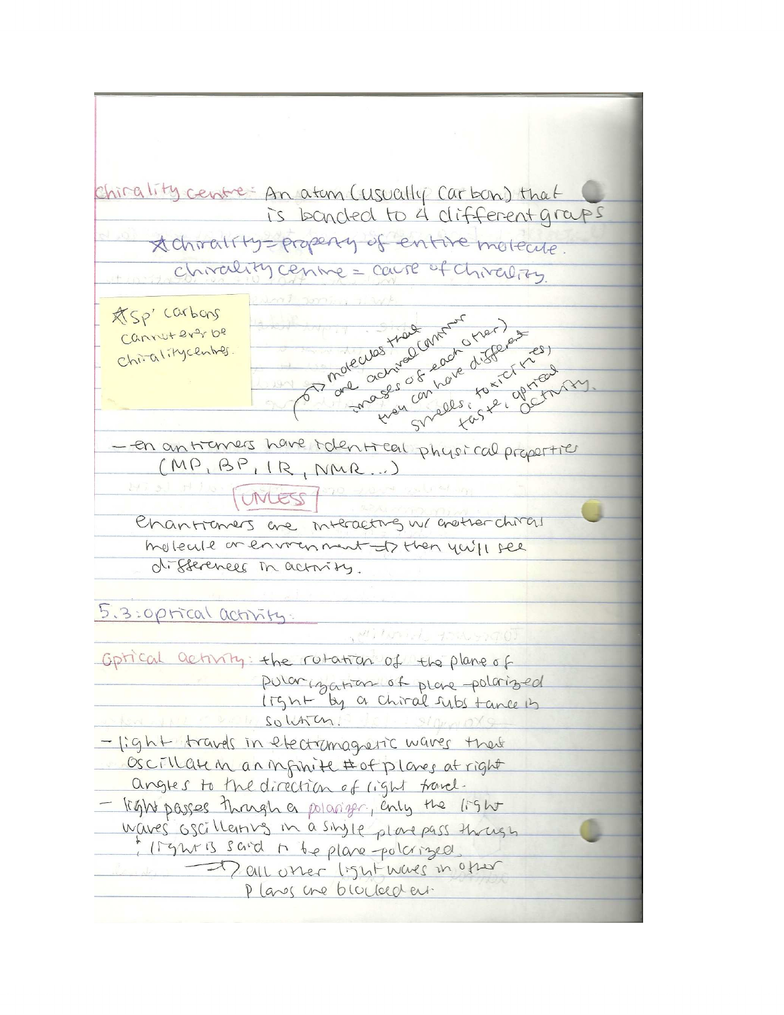 Chirality centre: An atom (usually Carbon) that
is bonded to 4 different groups
☆chirality = property of entire molecule.
chirality centre = cause of chirality.
☆sp' carbons
cannot ever be
chirality centres.
→ molecules that
are achiral (mirror
images of each other)
they can have different
smells, toxicities,
taste, optical
activity.
- enantiomers have identical physical properties
(MP, BP, IR, NMR...)
UNLESS
Enantiomers are interacting w/ another chiral
molecule or environment ⇒ then you'll see
differences in activity.
5.3: optical activity:
Optical activity: the rotation of the plane of
polarization of plane-polarized
light by a chiral substance in
solution.
- light travels in electromagnetic waves that
oscillate in an infinite # of planes at right
angles to the direction of light travel.
- light passes through a polarizer, only the light
waves oscillating in a single plane pass through
+ light is said to be plane-polarized.
⇒ all other light waves in other
planes are blocked out.